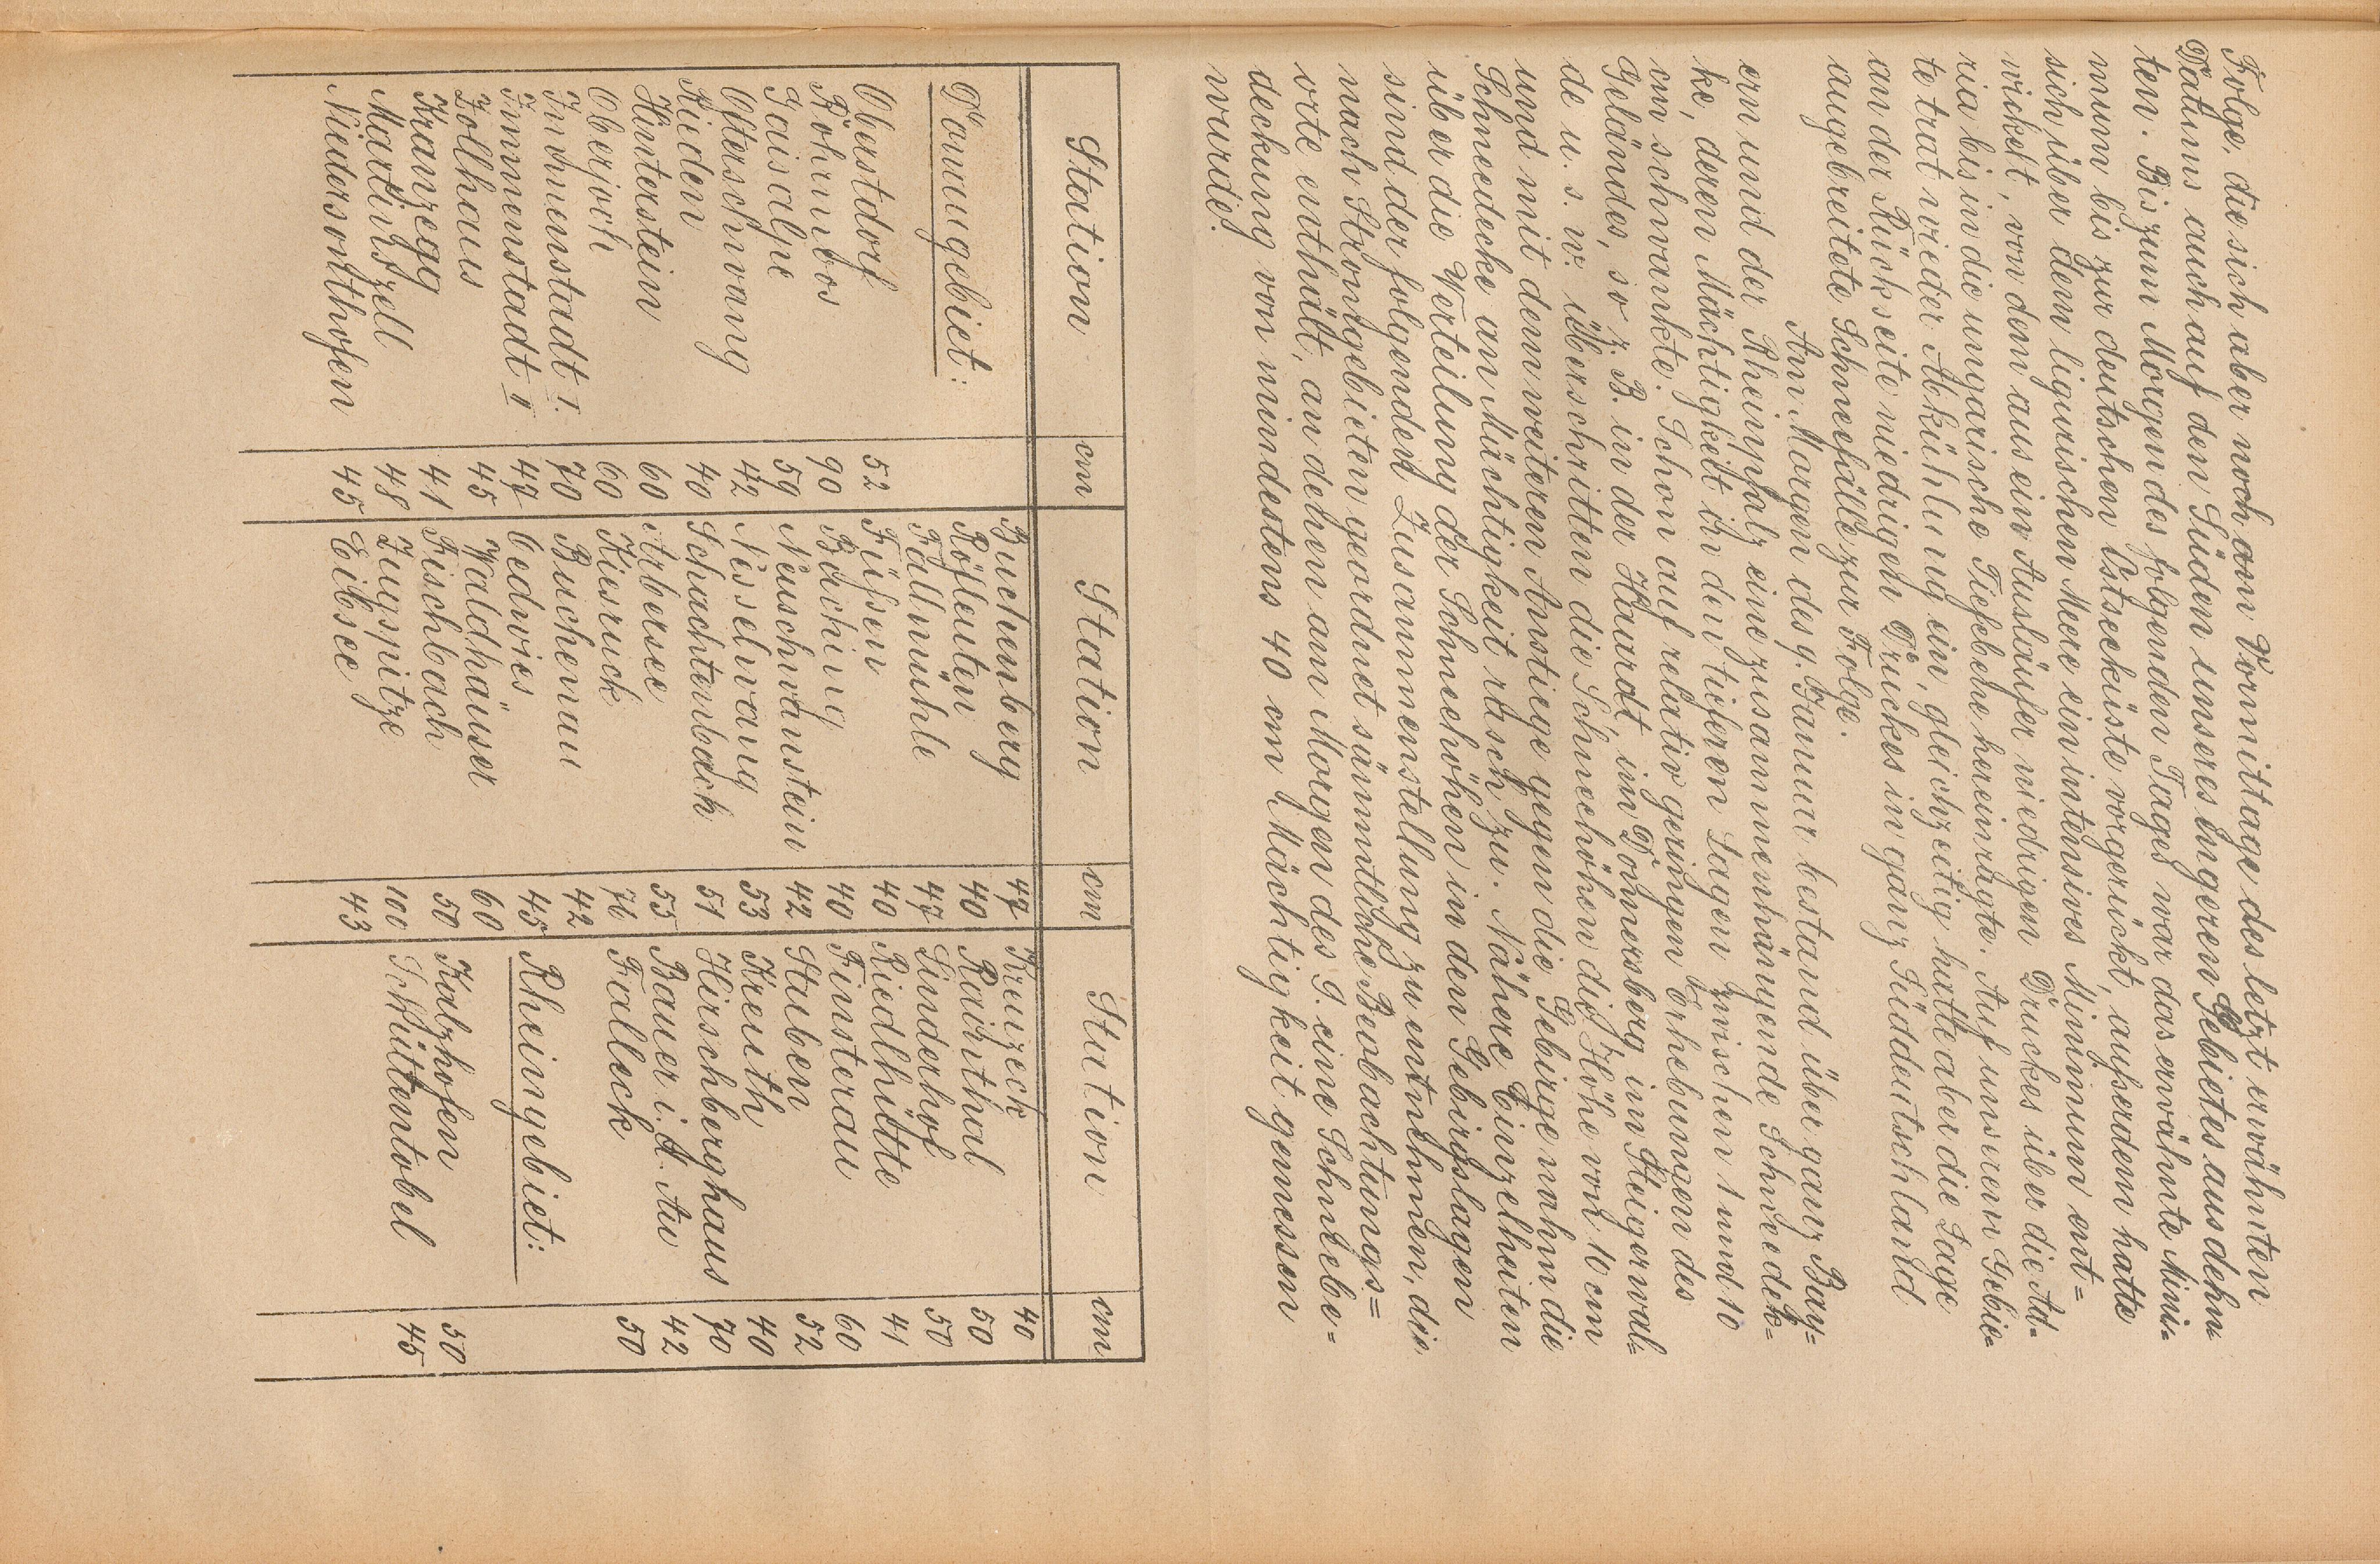 Folge, die sich aber noch am Vormittage des letzt erwähnten
Datums auch auf den Süden unseres engeren Gebietes ausdehn-
ten. Bis zum Morgen des folgenden Tages war das erwähnte Mini-
mum bis zur deutschen Ostseeküste vorgerückt, aufserdem hatte
sich über dem ligurischen Meere ein intensives Minimum ent-
wickelt, von dem aus ein Ausläufer niedrigen Druckes über die Ad-
ria bis in die ungarische Tiefebene hereinragte. Auf unserem Gebie-
te trat wieder Abkühlung ein, gleichzeitig hatte aber die Lage
an der Rückseite niedrigen Druckes in ganz Süddeutschland
ausgebreitete Schneefälle zur Folge.
Am Morgen des 9. Januar bestand über ganz Bay-
ern und der Rheinpfalz eine zusammenhängende Schneedek-
ke, deren Mächtigkeit in den tieferen Lagen zwischen 1 und 10
cm schwankte. Schon auf relativ geringen Erhebungen des
Geländes, so z. B. in der Haardt, im Donnersberg, im Steigerwal-
de u. s. w. überschritten die Schneehöhen die Höhe von 10 cm
und mit dem weiteren Anstiege gegen die Gebirge nahm die
Schneedecke an Mächtigkeit rasch zu. Nähere Einzelheiten
über die Verteilung der Schneehöhen in den Gebirgslagen
sind der folgenden Zusammenstellung zu entnehmen, die
nach Stromgebieten geordnet sämmtliche Beobachtungs-
orte enthält, an denen am Morgen des 9. eine Schneebe-
deckung von mindestens 40 cm Mächtigkeit gemessen
wurde.
Station cm Station cm Station cm
Buchenberg 47 Kreuzeck 40
Donaugebiet: Röfleuten 40 Rainthal 50
Fallmühle 47 Linderhof 50
Oberstdorf 52 Füfsen 40 Riedhütte 41
Rohrmoos 90 Bäching 40 Finsterau 60
Gaisalpe 59 Neuschwanstein 42 Stuben 52
Ofterschwang 42 Nesselwang 53 Kreuth 40
Rieden 40 Schachtenbach 51 Hirschberghaus 70
Hinterstein 60 Arbersee 55 Bauer i. d. Au 42
Oberjoch 60 Riesruck 76 Falleck 50
Immenstadt I. 70 Buchenau 42
Immenstadt II 47 Oedwies 45 Rheingebiet:
Zollhaus 45 Waldhäuser 60
Kranzegg 41 Fischbach 50 Kalzhofen 50
Martinszell 48 Zugspitze 100 Schüttentobel 45
Niedersonthofen 45 Eibsee 43